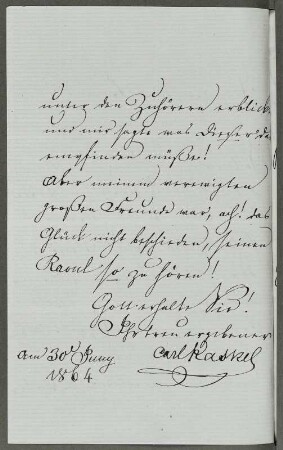 unter den Zuhörern erblickt
und mir sagte was dieser da
empfinden müße!
Aber meinem verewigten
großen Freunde war, ach! das
Glück nicht beschieden, seinen
Raoul so zu hören!
Gott erhalte Sie!
Ihr treu ergebener
Carl Kaskel
Am 30t Juny
1864